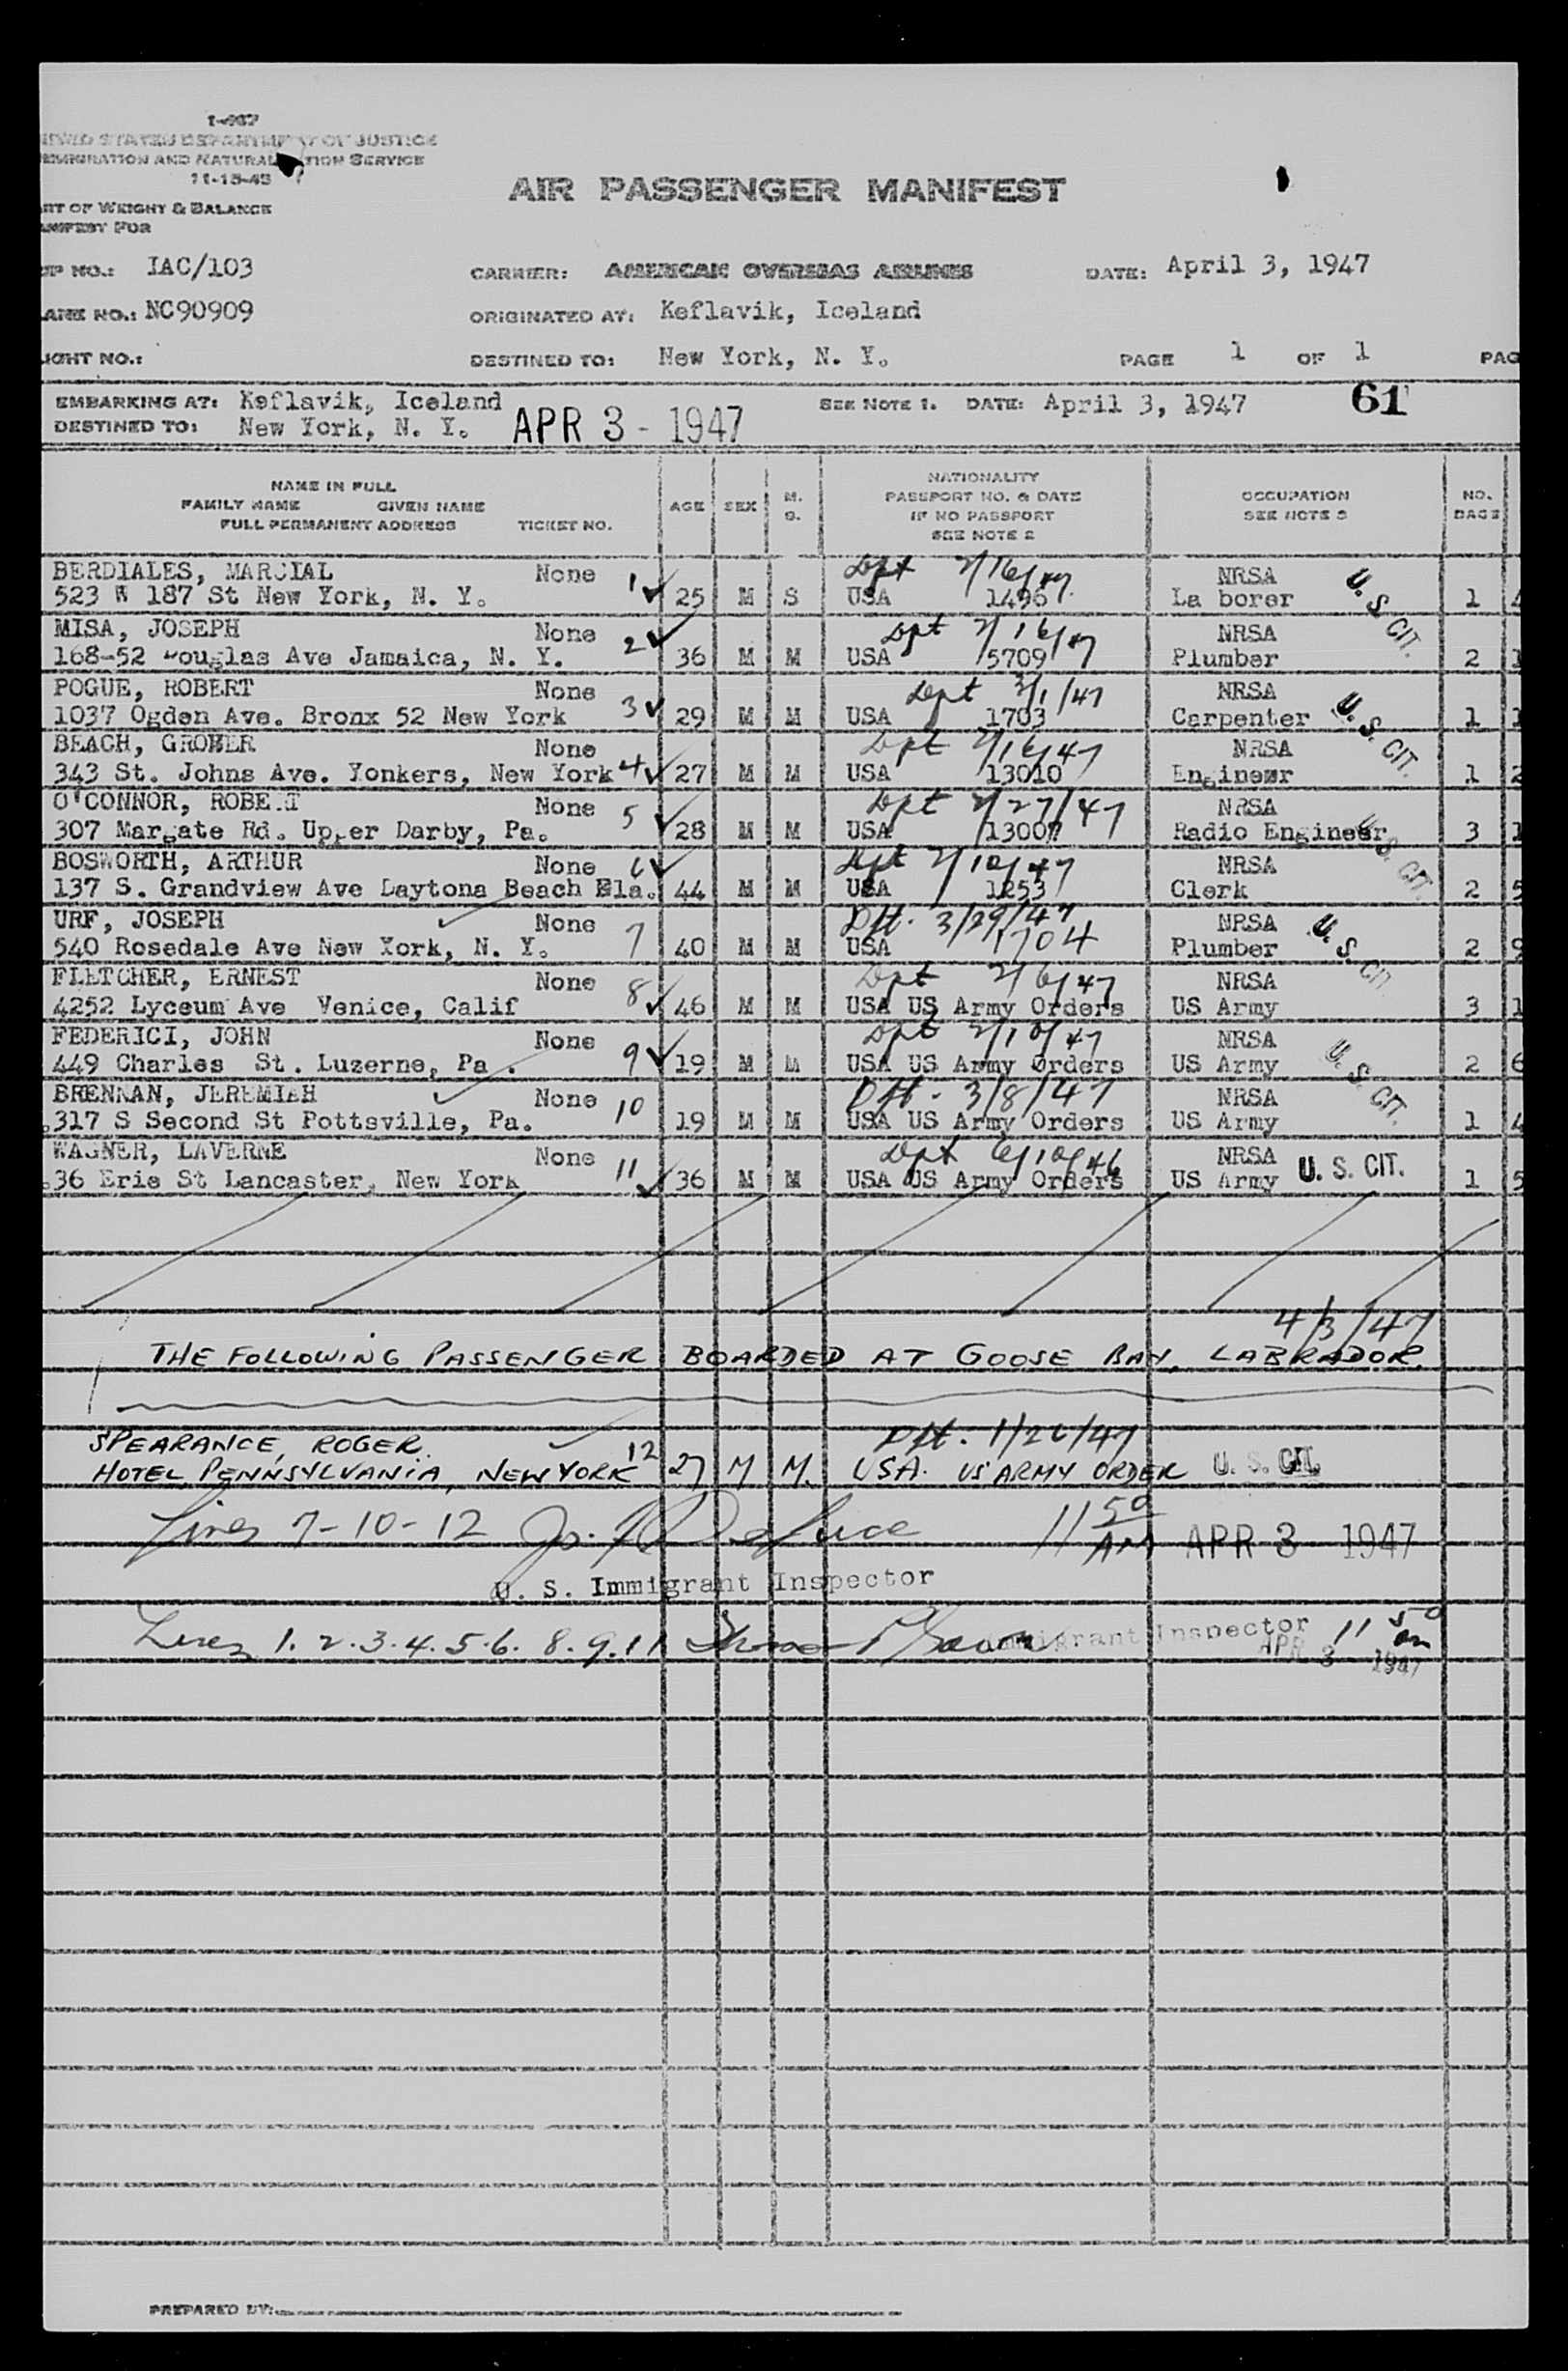 I-467
UNITED STATES DEPARTMENT OF JUSTICE
IMMIGRATION AND NATURALIZATION SERVICE
11-15-43
AIR PASSENGER MANIFEST
RT OF WEIGHT & BALANCE
ANIFEST FOR
IP NO.: IAC/103 CARRIER: AMERICAN OVERSEAS AIRLINES DATE: April 3, 1947
LANE NO.: NC90909 ORIGINATED AT: Keflavik, Iceland
IGHT NO.: DESTINED TO: New York, N. Y. PAGE 1 OF 1 PAG
EMBARKING AT: Keflavik, Iceland SEE NOTE 1. DATE: April 3, 1947 61
DESTINED TO: New York, N. Y. APR 3 - 1947
NAME IN FULL
FAMILY NAME GIVEN NAME
FULL PERMANENT ADDRESS TICKET NO.
AGE SEX M. S.
NATIONALITY
PASSPORT NO. & DATE
IF NO PASSPORT
SEE NOTE 2
OCCUPATION
SEE NOTE 3
NO.
BAGS
BERDIALES, MARCIAL None 1 Dpt 2/16/47 NRSA U. S. CIT.
523 W 187 St New York, N. Y. 25 M S USA 1496 La borer 1 4
MISA, JOSEPH None 2 Dpt 2/16/47 NRSA
168-52 Douglas Ave Jamaica, N. Y. 36 M M USA 5709 Plumber 2 1
POGUE, ROBERT None 3 Dpt 3/1/47 NRSA U. S. CIT.
1037 Ogden Ave. Bronx 52 New York 29 M M USA 1703 Carpenter 1 1
BEACH, GROMER None 4 Dpt 2/16/47 NRSA
343 St. Johns Ave. Yonkers, New York 27 M M USA 13010 Engineer 1 2
O'CONNOR, ROBERT None 5 Dpt 2/27/47 NRSA U. S. CIT.
307 Margate Rd. Upper Darby, Pa. 28 M M USA 13007 Radio Engineer 3 1
BOSWORTH, ARTHUR None 6 Dpt 2/10/47 NRSA
137 S. Grandview Ave Daytona Beach Fla. 44 M M USA 1253 Clerk 2 5
URF, JOSEPH None 7 Dpt. 3/29/47 NRSA U. S. CIT.
540 Rosedale Ave New York, N. Y. 40 M M USA 1704 Plumber 2 9
FLETCHER, ERNEST None 8 Dpt 2/6/47 NRSA
4252 Lyceum Ave Venice, Calif 46 M M USA US Army Orders US Army 3 1
FEDERICI, JOHN None 9 Dpt 2/10/47 NRSA U. S. CIT.
449 Charles St. Luzerne, Pa . 19 M M USA US Army Orders US Army 2 6
BRENNAN, JEREMIAH None 10 Dpt. 3/8/47 NRSA
317 S Second St Pottsville, Pa. 19 M M USA US Army Orders US Army 1 4
WAGNER, LAVERNE None 11 Dpt 6/10/46 NRSA U. S. CIT.
36 Erie St Lancaster, New York 36 M M USA US Army Orders US Army 1 5
4/3/47
THE FOLLOWING PASSENGER BOARDED AT GOOSE BAY, LABRADOR.
SPEARANCE, ROGER. 12 Dpt. 1/26/47
HOTEL PENNSYLVANIA, NEW YORK 27 M M. USA. US ARMY ORDER U. S. CIT.
Lines 7-10-12 11 50 AM APR 3 1947
U. S. Immigrant Inspector
Lines 1. 2. 3. 4. 5. 6. 8. 9. 11 Immigrant Inspector 11 50 am
APR 3 1947
PREPARED BY: